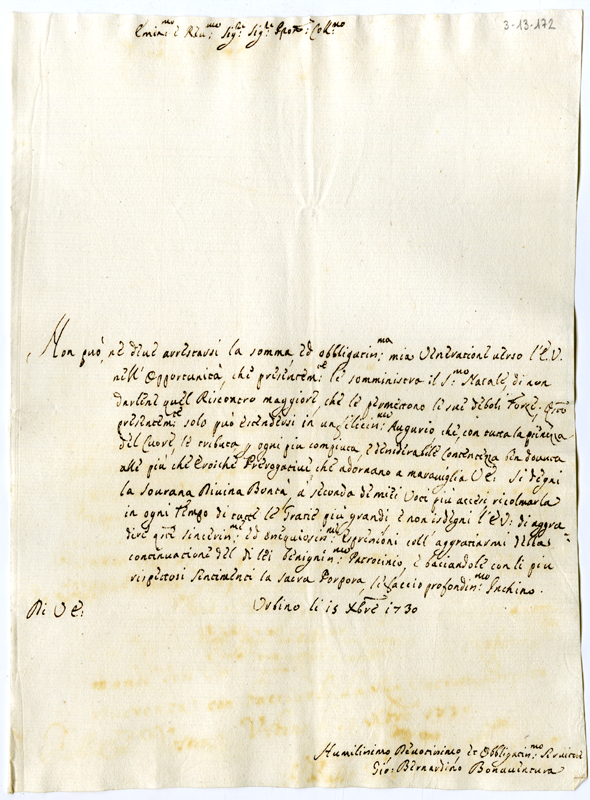 3-13-172
Emin:mo e Rev:mo Sig:re Sig:re Pron: Coll:mo
Non può, ne deve arrestarsi la somma, ed obbligatiss:ma mia Venerazione verso l'E.V.
nell'Opportunità, che presentem:te le somministra il S:mo Natale, di non
darlene quel Riscontro maggiore, che le permettono le sue deboli Forze,
presentem:te solo può estendersi in un felicis:mo Augurio che, con tutta la pienezza
del Cuore, le tributa p ogni piu compiuta, e desiderabile Contentezza ben dovuta
alle più, che eroiche Prerogative che adornano a maraviglia V E: Si degni
la Sovrana Divina Bontà, a seconda de miei Voti più accesi ricolmarla
in ogni Tempo di tutte le Grazie più grandi, e non isdegni l'E.V: di aggra=
dire q:te sincerissi:me ed ossequiosiss:me Espressioni coll'aggraziarmi della
continuazione del di lei benigniss:mo Patrocinio, e baciandole con li piu
rispettosi sentimenti la Sacra Porpora, le faccio profondiss:mo Inchino.
Di V E: Urbino li 15 Xbre 1730
Humilissimo Devotissimo et Obbligatiss:mo Servitore
Gio: Bernardino Bonaventura